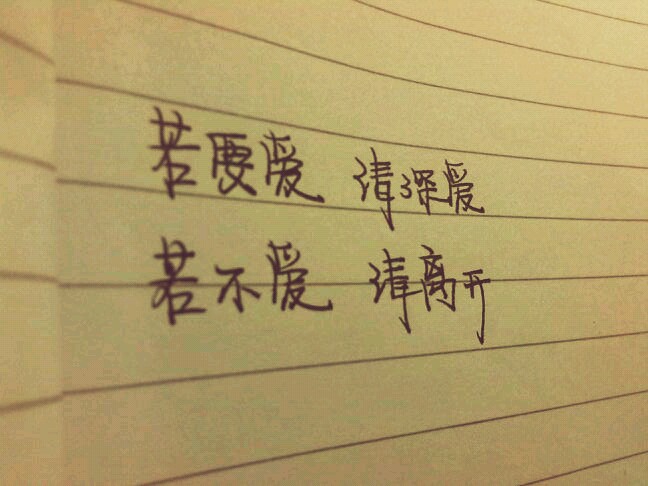 若要爱 请深爱
若不爱 请离开